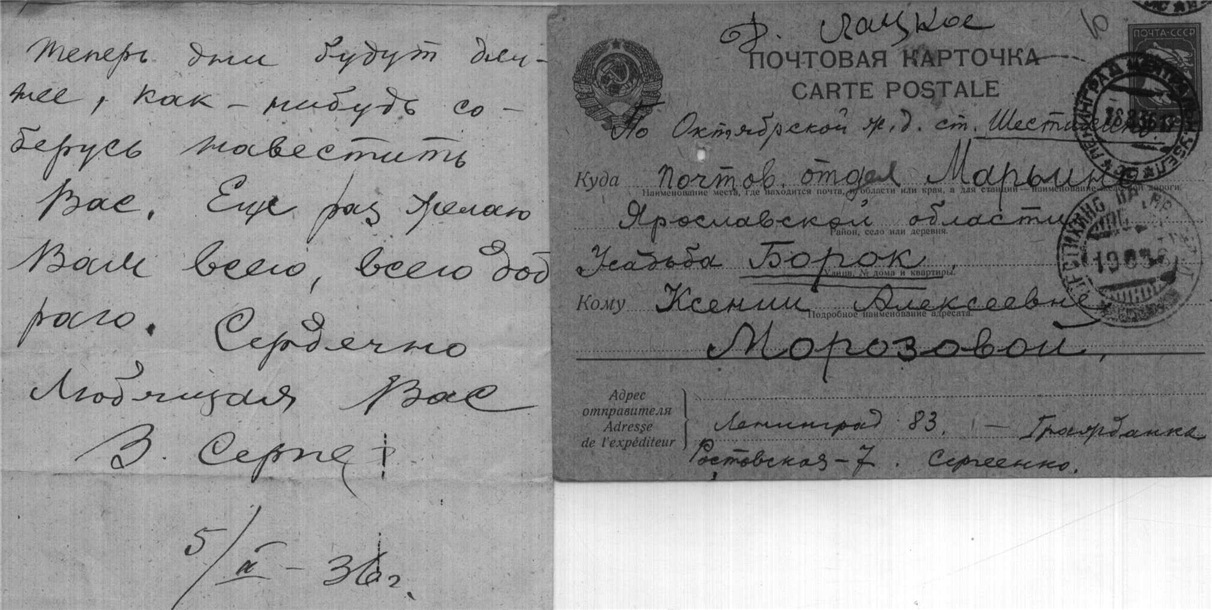 теперь дни будут длин-
нее, как-нибудь со-
берусь навестить
Вас. Еще раз желаю
Вам всего, всего доб
раго. Сердечно
Любящая Вас
В. Серге
5/II – 36 г.
Лацкое
ПОЧТА·СССР
ПОЧТОВАЯ КАРТОЧКА
CARTE POSTALE
По Октябрской ж.д. ст. Шестихино.
Куда Почтов. отдел Марьино
Наименование места, где находится почта, и области или края, а для станции — наименование железной дороги.
Ярославской области
Район, село или деревня.
Усадьба Борок.
Улица, № дома и квартиры.
Кому Ксении Алексеевне
Подробное наименование адресата.
Морозовой.
Адрес
отправителя
Adresse
de l'expéditeur
Ленинград 83. –
Ростовская-7. Сергеенко.